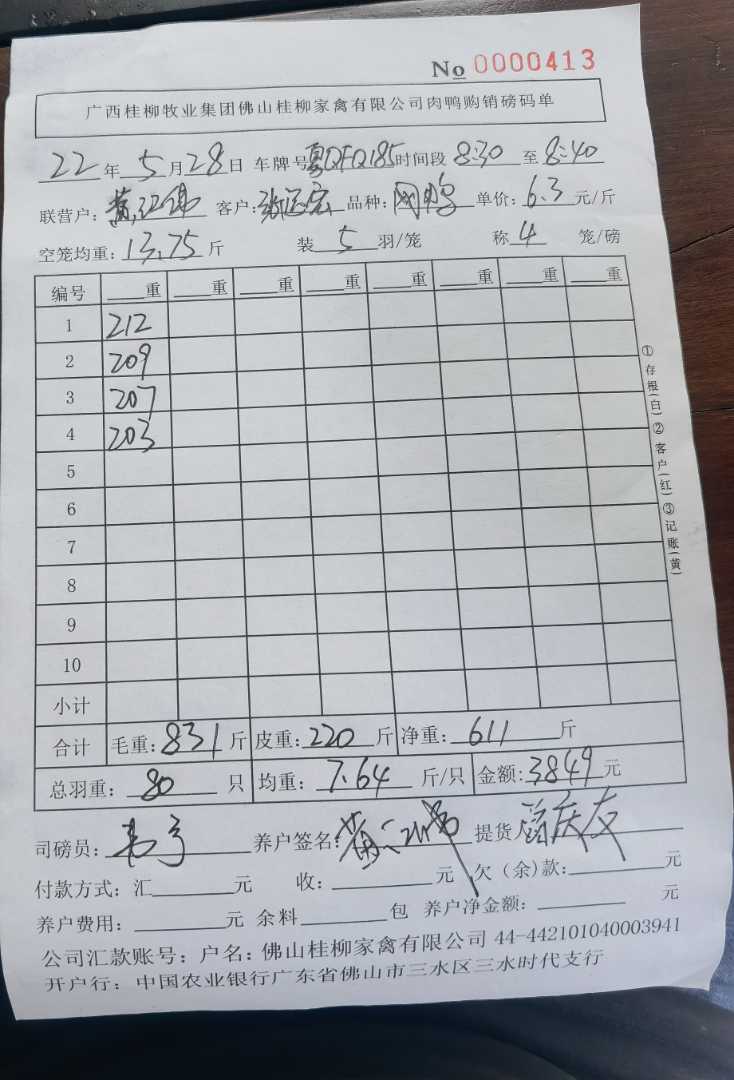 No 0000413
广西桂柳牧业集团佛山桂柳家禽有限公司肉鸭购销磅码单
22年5月28日 车牌号 QFQ185 时间段 8:30 至 8:40
联营户: 客户: 品种: 单价: 6.3 元/斤
空笼均重: 13.75 斤 装 5 羽/笼 称 4 笼/磅
编号 重 重 重 重 重 重 重 重
1 212
2 209
3 207
4 203
5
6
7
8
9
10
小计
合计 毛重: 831 斤 皮重: 220 斤 净重: 611 斤
总羽重: 80 只 均重: 7.64 斤/只 金额: 3849 元
司磅员: 养户签名: 提货
付款方式: 汇 元 收: 元 欠(余)款: 元
养户费用: 元 余料 包 养户净金额: 元
公司汇款账号: 户名: 佛山桂柳家禽有限公司 44-442101040003941
开户行: 中国农业银行广东省佛山市三水区三水时代支行
①存根(白)②客户(红)③记账(黄)